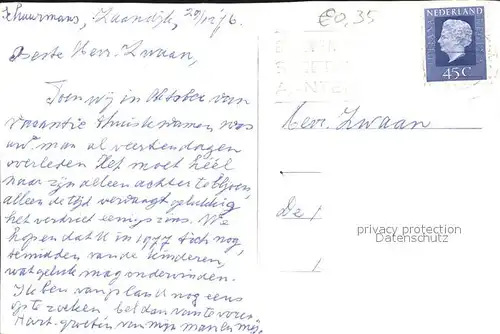 Schuurmans, Zaandijk, 20/12/76.
€0,35
NEDERLAND
45C
Beste Mevr. Zwaan,
Toen wij in Oktober van
vacantie thuiskwamen, was
uw man al veertien dagen
overleden. Het moet héél
naar zijn alleen achter te blijven,
alleen de tijd verzaagt gelukkig
het verdriet eenigszins. We
hopen dat U in 1977 toch nog,
temidden van de kinderen,
wat geluk mag ondervinden.
Ik ben van plan U nog eens
op te zoeken, bel dan van te voren.
Hart. groeten van mijn man en mij.
Mevr. Zwaan
De
privacy protection
Datenschutz